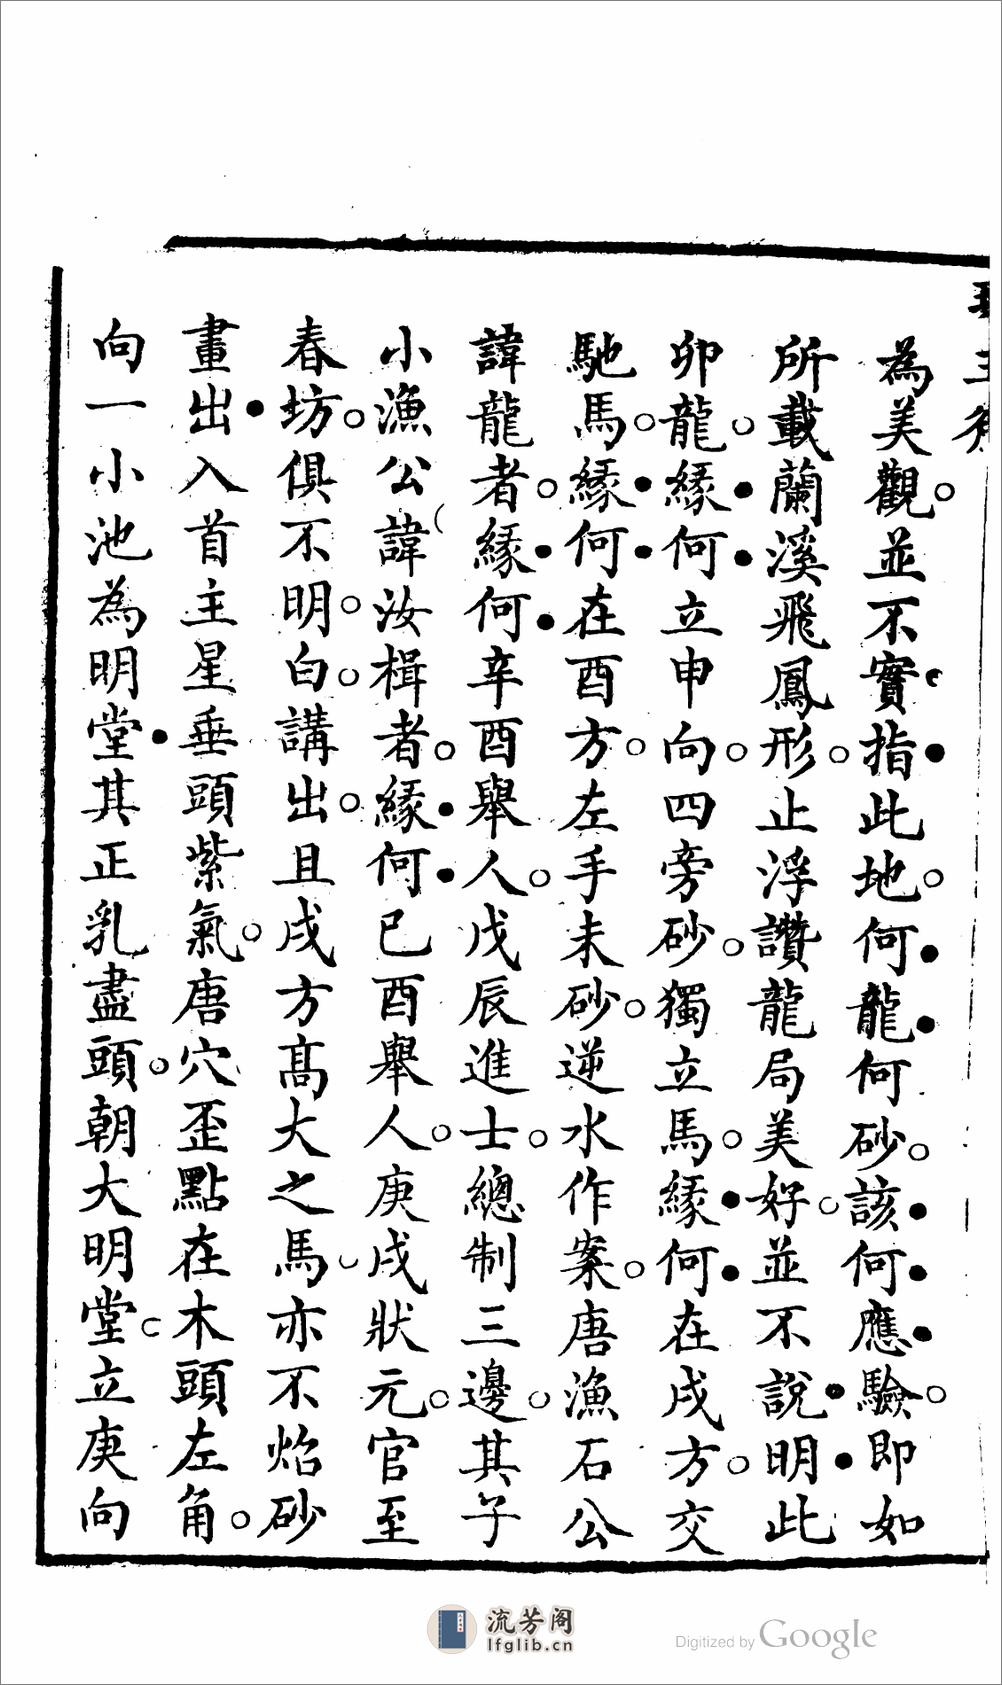 為美觀並不實指此地何龍何砂該何應驗即如
所載蘭溪飛鳳形止浮讚龍局美好並不說明此
卯龍緣何立申向四旁砂獨立馬緣何在戌方交
馳馬緣何在酉方左手未砂逆水作案唐漁石公
諱龍者緣何辛酉舉人戊辰進士總制三邊其子
小漁公諱汝楫者緣何已酉舉人庚戌狀元官至
春坊俱不明白講出且戌方高大之馬亦不焰砂
畫出入首主星垂頭紫氣唐穴歪點在木頭左角
向一小池為明堂其正乳盡頭朝大明堂立庚向
流芳阁
lfglib.cn
Digitized by Google